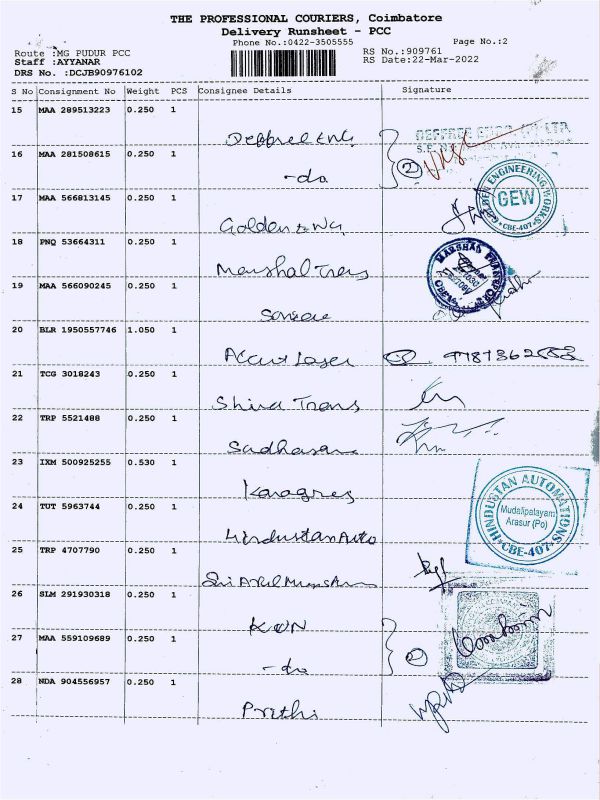 THE PROFESSIONAL COURIERS, Coimbatore
Delivery Runsheet - PCC
Phone No.:0422-3505555
Page No.:2
Route :MG PUDUR PCC
RS No.:909761
Staff :AYYANAR
RS Date:22-Mar-2022
DRS No. :DCJB90976102
S No Consignment No Weight PCS Consignee Details Signature
15 MAA 289513223 0.250 1
16 MAA 281508615 0.250 1
-do
17 MAA 566813145 0.250 1
Golden
18 PNQ 53664311 0.250 1
Marshal Trans
19 MAA 566090245 0.250 1
20 BLR 1950557746 1.050 1
Laser
21 TCG 3018243 0.250 1
Shiva Trans
22 TRP 5521488 0.250 1
23 IXM 500925255 0.530 1
24 TUT 5963744 0.250 1
Hindustan Auto
25 TRP 4707790 0.250 1
26 SLM 291930318 0.250 1
27 MAA 559109689 0.250 1
-do
28 NDA 904556957 0.250 1
Prithi
2
GOLDEN ENGINEERING WORKS
GEW
CBE-407
HINDUSTAN AUTOMATIONS
Mudalipalayam
Arasur (Po)
CBE-407
2